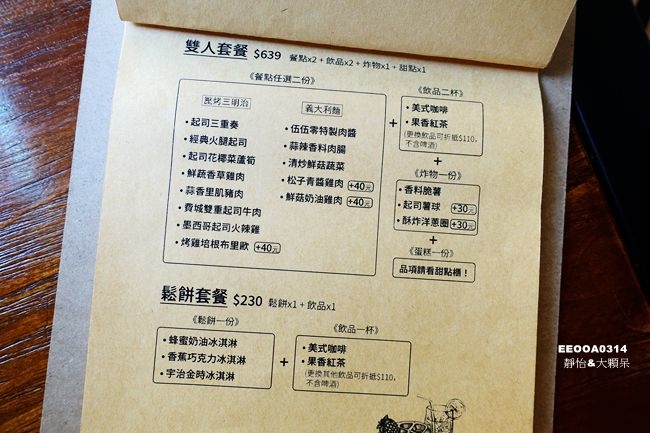 雙人套餐 $639 餐點x2+飲品x2+炸物x1+甜點x1
《餐點任選二份》
壓烤三明治
• 起司三重奏
• 經典火腿起司
• 起司花椰菜蘆筍
• 鮮蔬香草雞肉
• 蒜香里肌豬肉
• 費城雙重起司牛肉
• 墨西哥起司火辣雞
• 烤雞培根布里歐 +40元
義大利麵
• 伍伍零特製肉醬
• 蒜辣香料肉腸
• 清炒鮮菇蔬菜
• 松子青醬雞肉 +40元
• 鮮菇奶油雞肉 +40元
+
《飲品二杯》
• 美式咖啡
• 果香紅茶
(更換飲品可折抵$110,
不含啤酒)
+
《炸物一份》
• 香料脆薯
• 起司薯球 +30元
• 酥炸洋蔥圈 +30元
+
《蛋糕一份》
品項請看甜點櫃！
鬆餅套餐 $230 鬆餅x1+飲品x1
《鬆餅一份》
• 蜂蜜奶油冰淇淋
• 香蕉巧克力冰淇淋
• 宇治金時冰淇淋
+
《飲品一杯》
• 美式咖啡
• 果香紅茶
(更換其他飲品可折抵$110,
不含啤酒)
EEOOA0314
靜怡&大顆呆